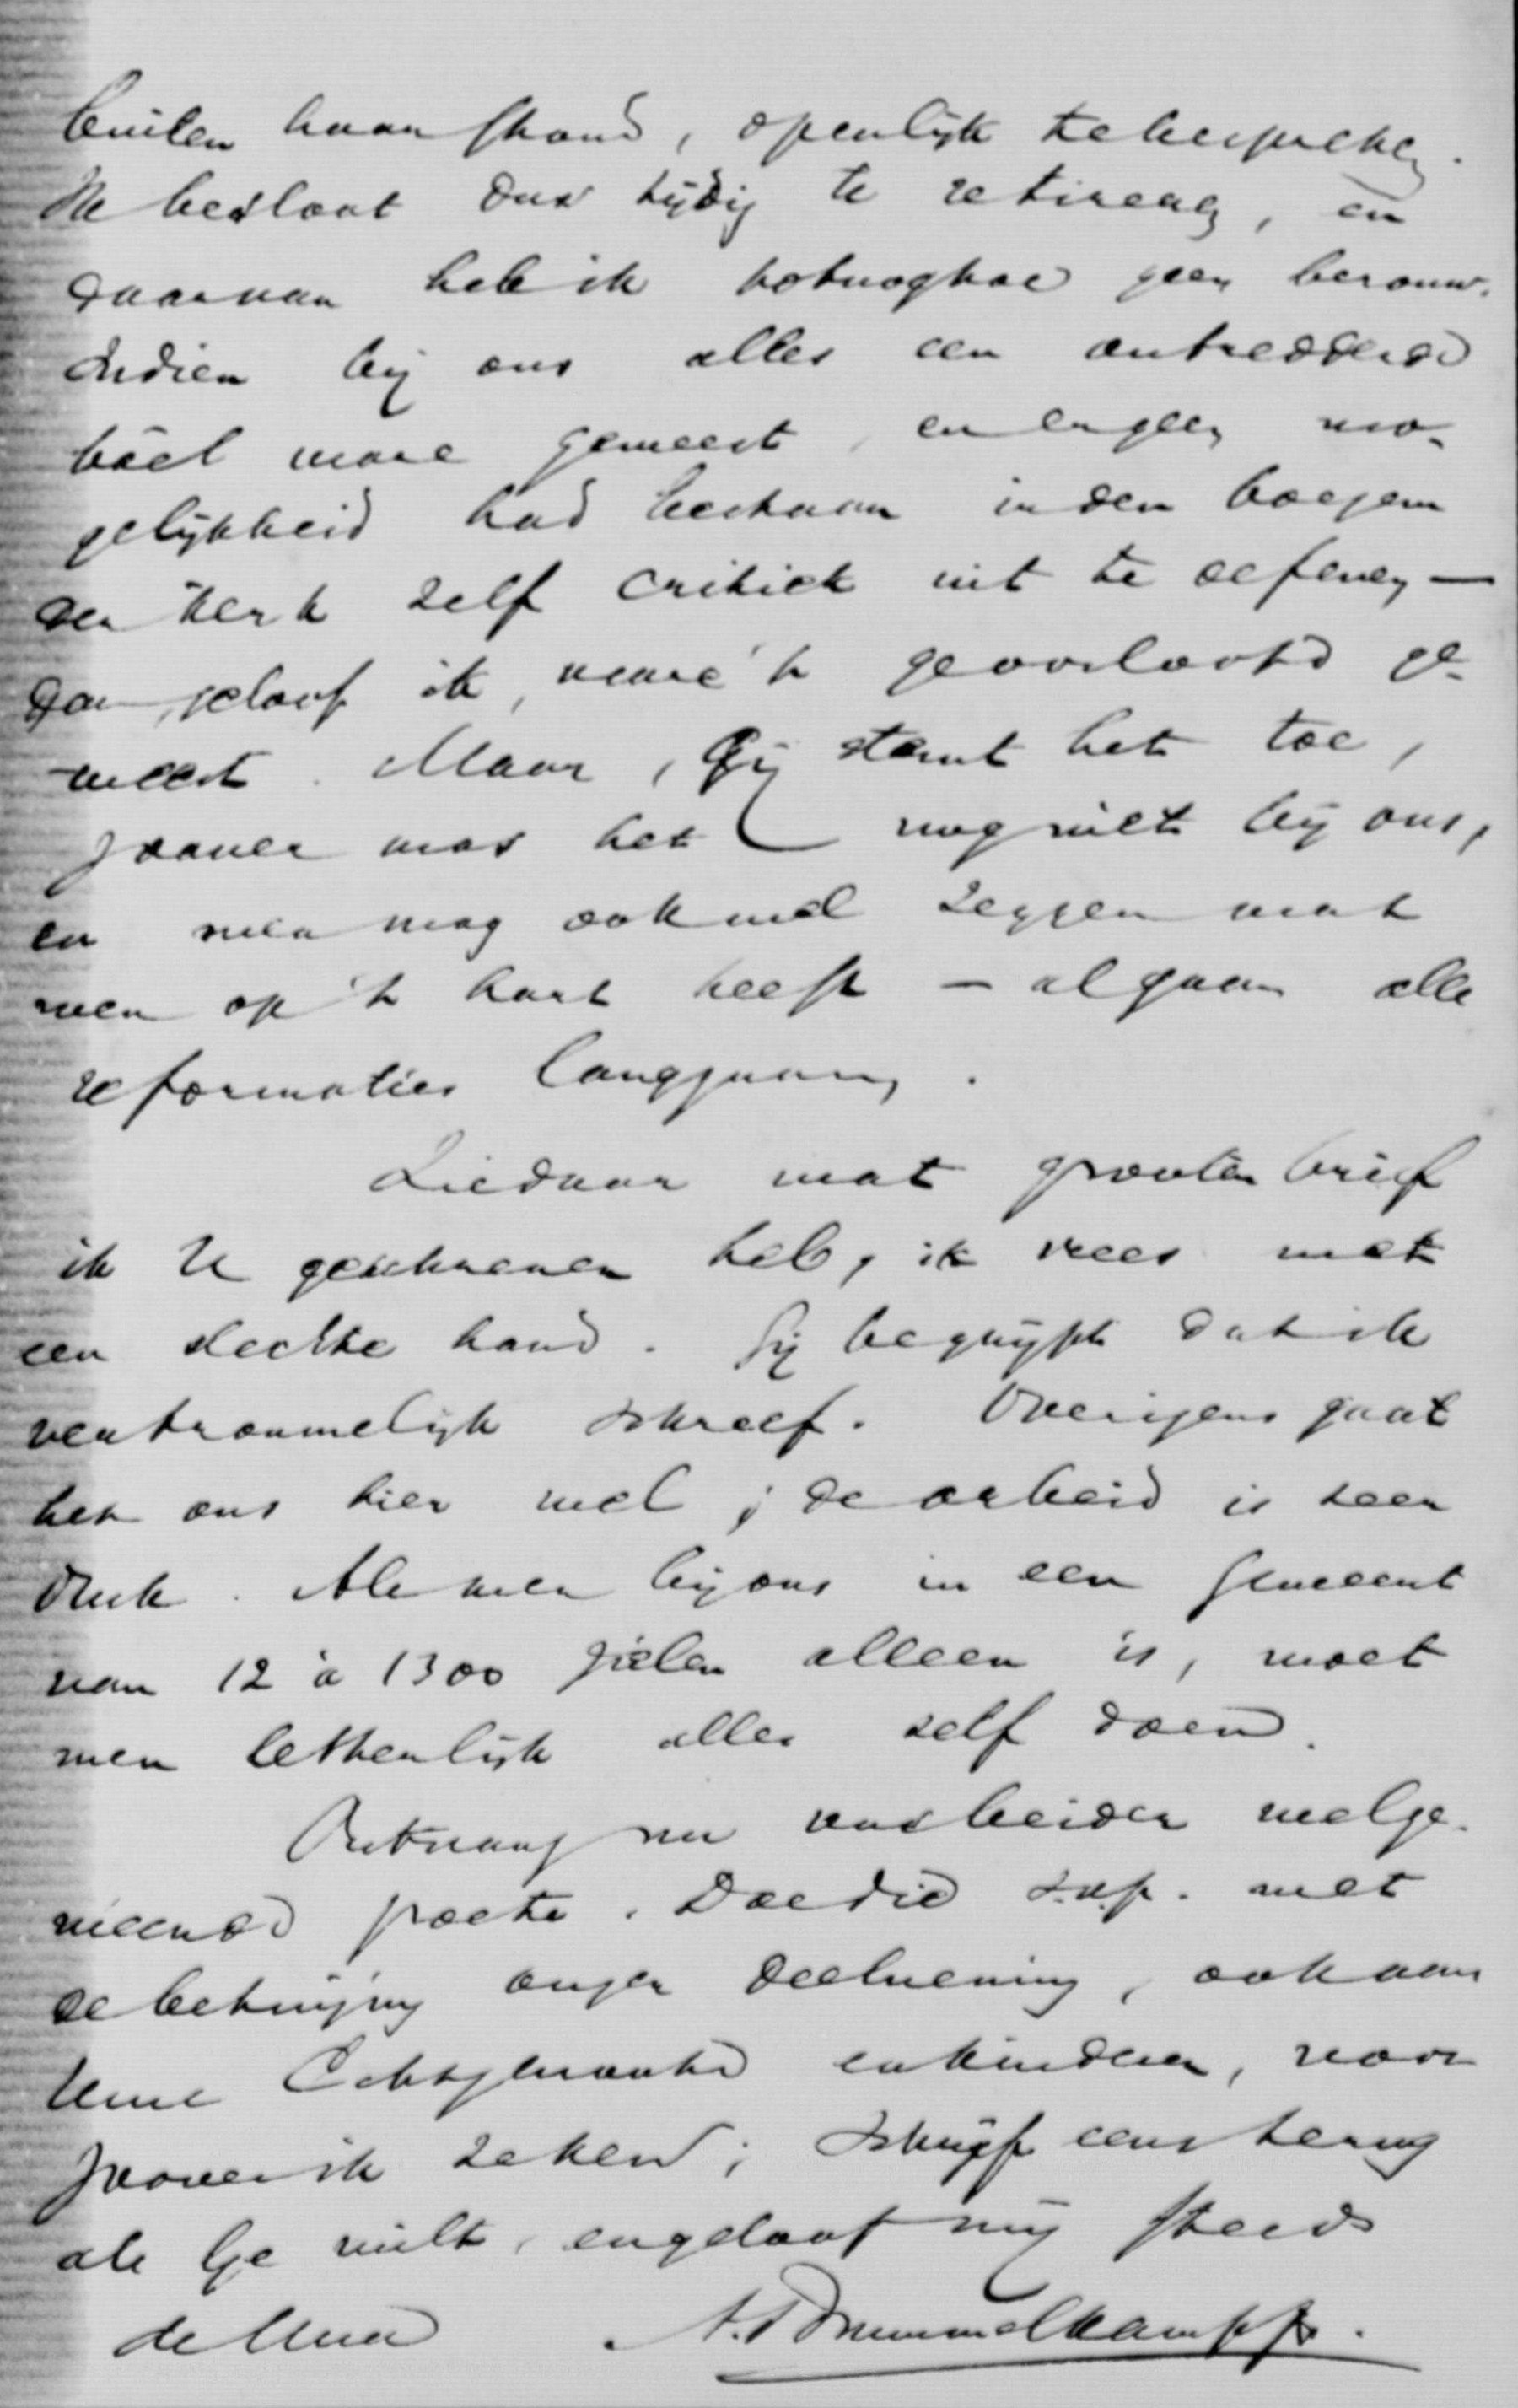 buiten haar stond, openlijk te bespreken.
Ik besloot dus tijdig te retireren, en
daarvan heb ik totnogtoe geen berouw.
Indien bij ons alles een ontredderde
boel ware geweest, en er geen mo-
gelijkheid had bestaan in den boezem
der kerk zelf critiek uit te oefenen —
dan, geloof ik, ware 't geoorloofd ge-
weest. Maar, Gij stemt het toe,
zoover was het nog niet bij ons,
en men mag ook wel zeggen wat
men op 't hart heeft — al gaan alle
reformaties langzaam.
Ziedaar wat grooten brief
ik U geschreven heb, ik vrees met
een slechte hand. Gij begrijpt dat ik
vertrouwelijk schreef. Overigens gaat
het ons hier wel; de arbeid is zeer
druk. Als men bij ons in een Gemeent
van 12 à 1300 zielen alleen is, moet
men letterlijk alles zelf doen.
Ontvang nu van beiden welge-
meende groete. Doe die s.v.p. met
de betuiging onzer deelneming, ook aan
Uwe Echtgenoote en kinderen, voor
zoover ik zeker; schrijf eens terug
als Ge wilt, en geloof mij steeds
de Uwe A. Brummelkamp Jr.